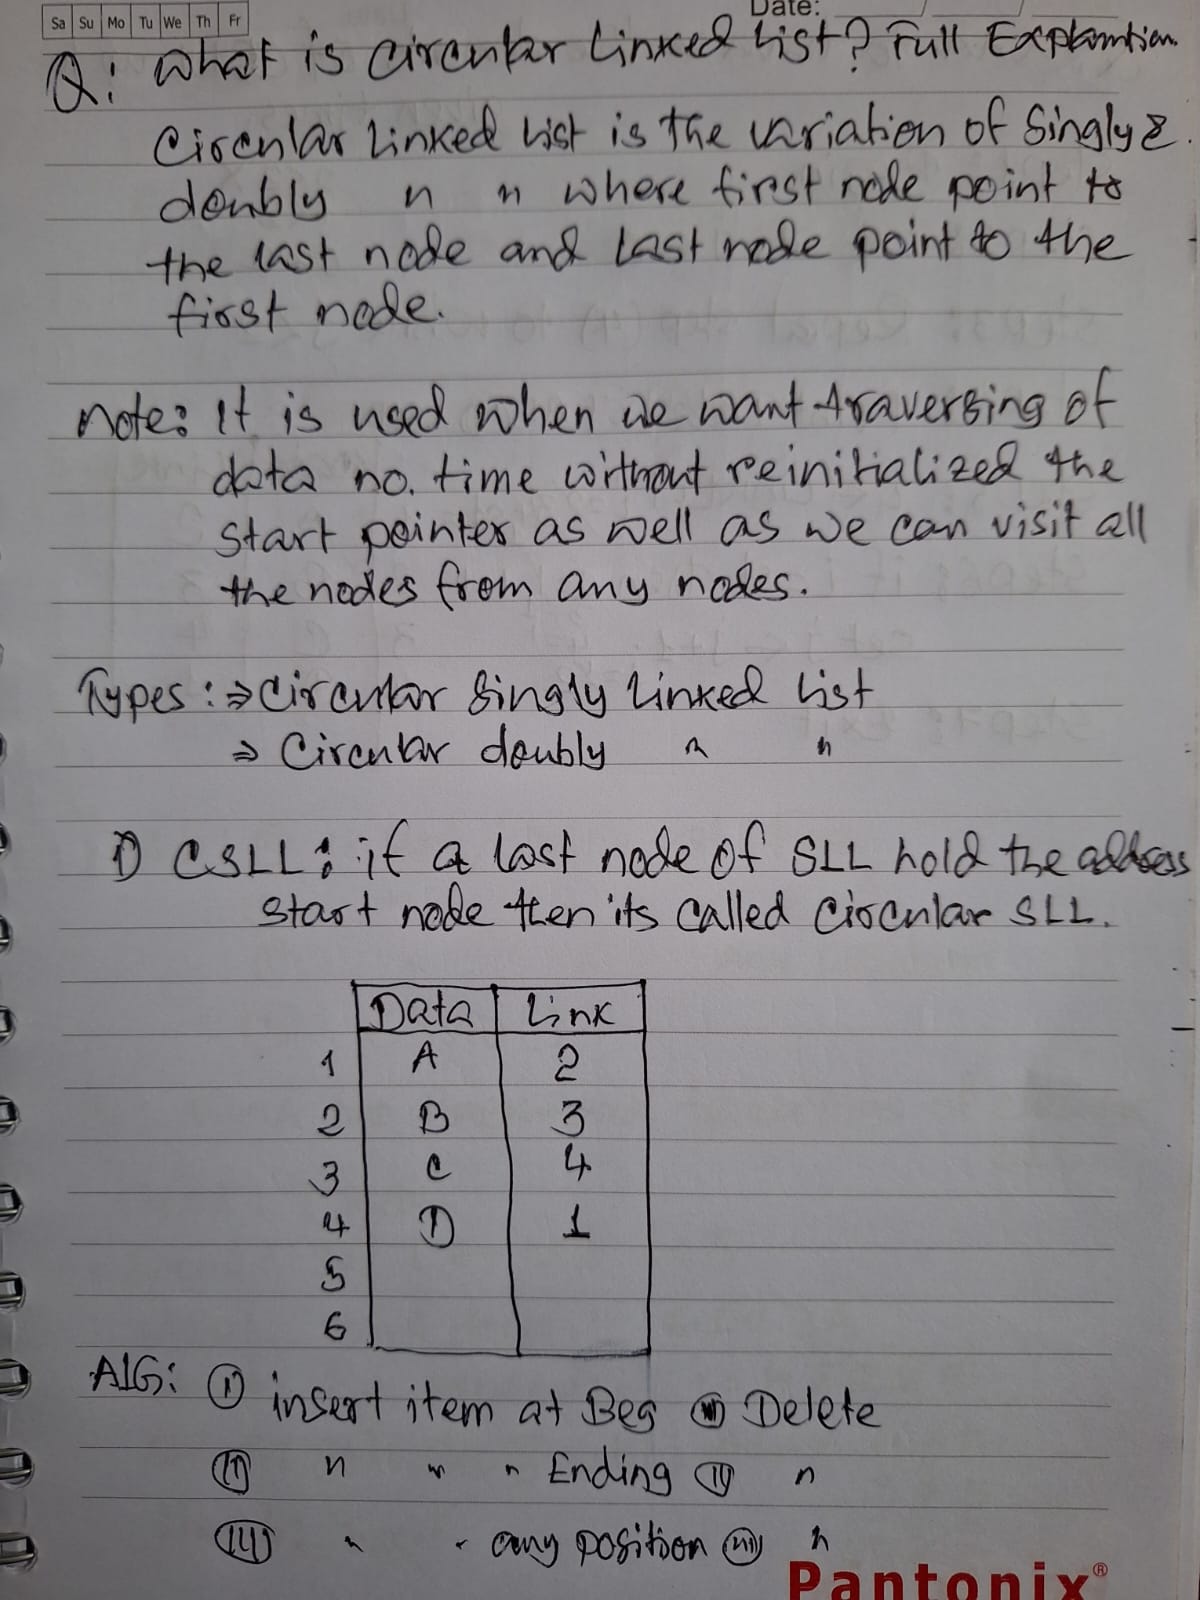 Sa Su Mo Tu We Th Fr
Date:
Q: What is circular linked list? Full Explanation.
Circular linked list is the variation of Singly &
doubly " " where first node point to
the last node and last node point to the
first node.
Note: It is used when we want traversing of
data no. time without reinitialized the
start pointer as well as we can visit all
the nodes from any nodes.
Types: ⇒ Circular Singly linked list
⇒ Circular doubly " "
1) CSLL: if a last node of SLL hold the address
start node then its called Circular SLL.
Data Link
1 A 2
2 B 3
3 C 4
4 D 1
5
6
AlG: (i) insert item at Beg Delete
(ii) " " " Ending (iv) "
(iii) " " any position "
Pantonix®